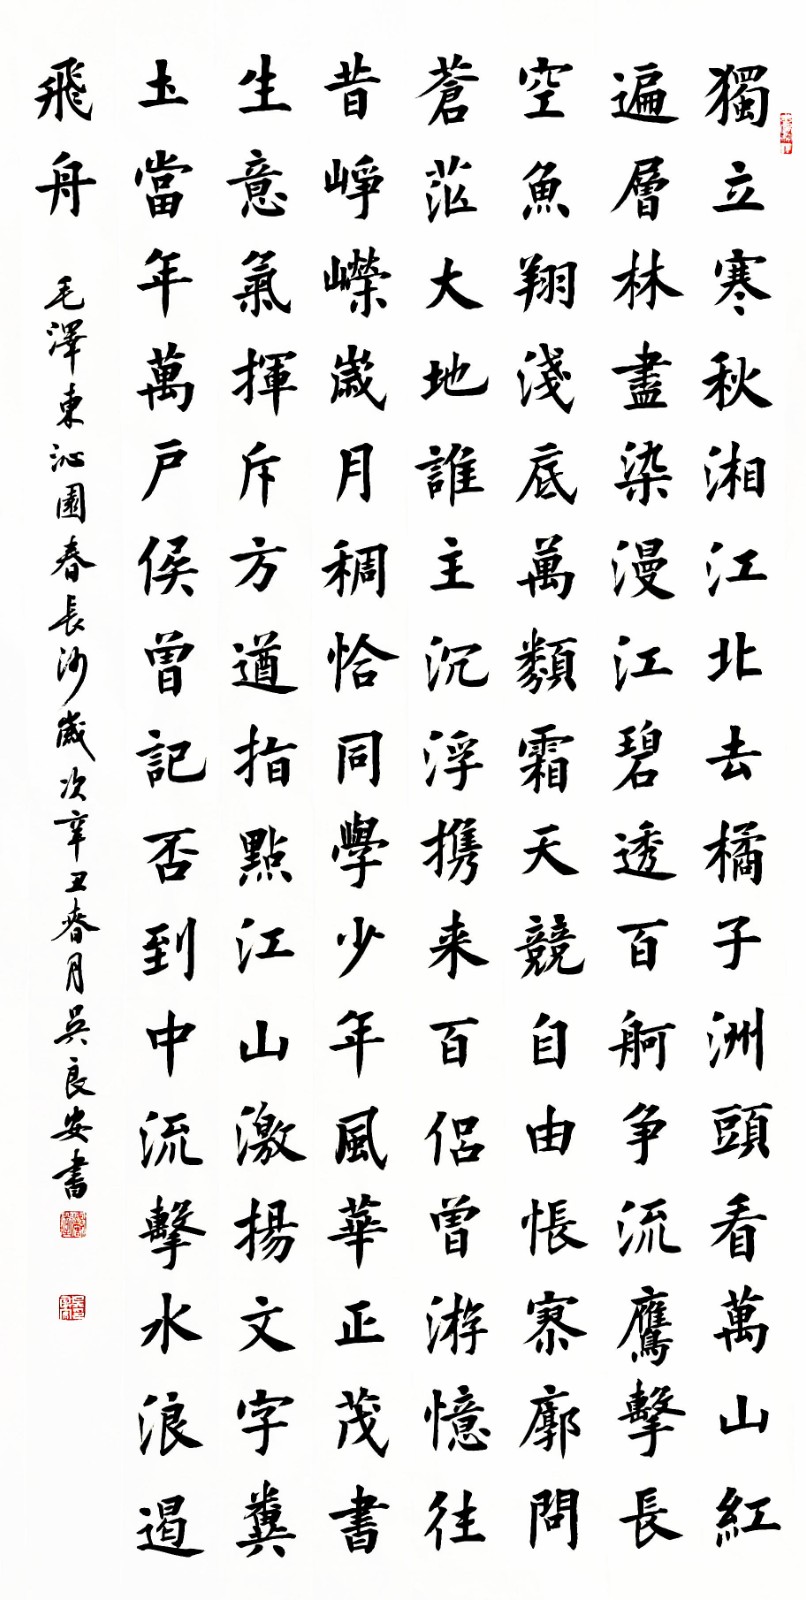 獨立寒秋湘江北去橘子洲頭看萬山紅
遍層林盡染漫江碧透百舸争流鷹擊長
空魚翔淺底萬類霜天競自由悵寥廓問
蒼茫大地誰主沉浮攜来百侣曾游憶往
昔崢嶸歲月稠恰同學少年風華正茂書
生意氣揮斥方遒指點江山激揚文字糞
土當年萬户侯曾記否到中流擊水浪遏
飛舟
毛澤東沁園春長沙歲次辛丑春月吳良安書